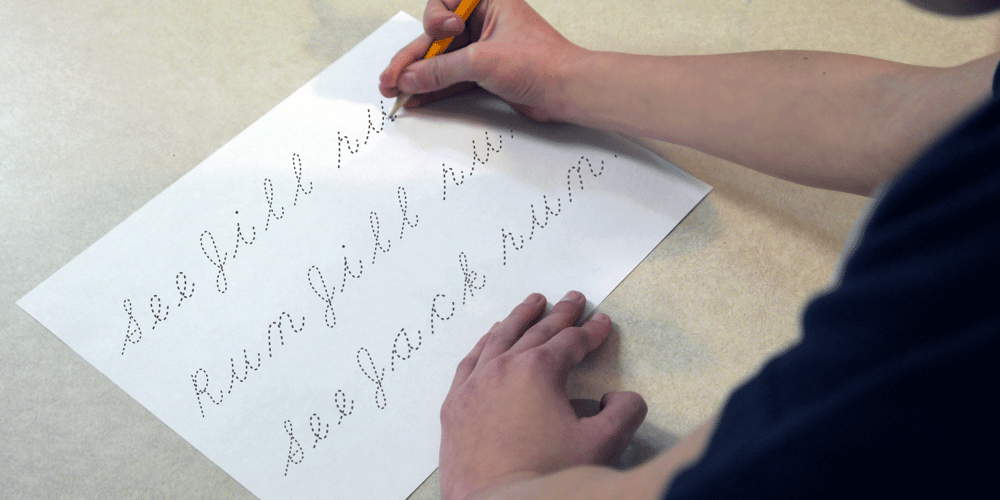 See Jill ru
Run Jill ru
See Jack run.